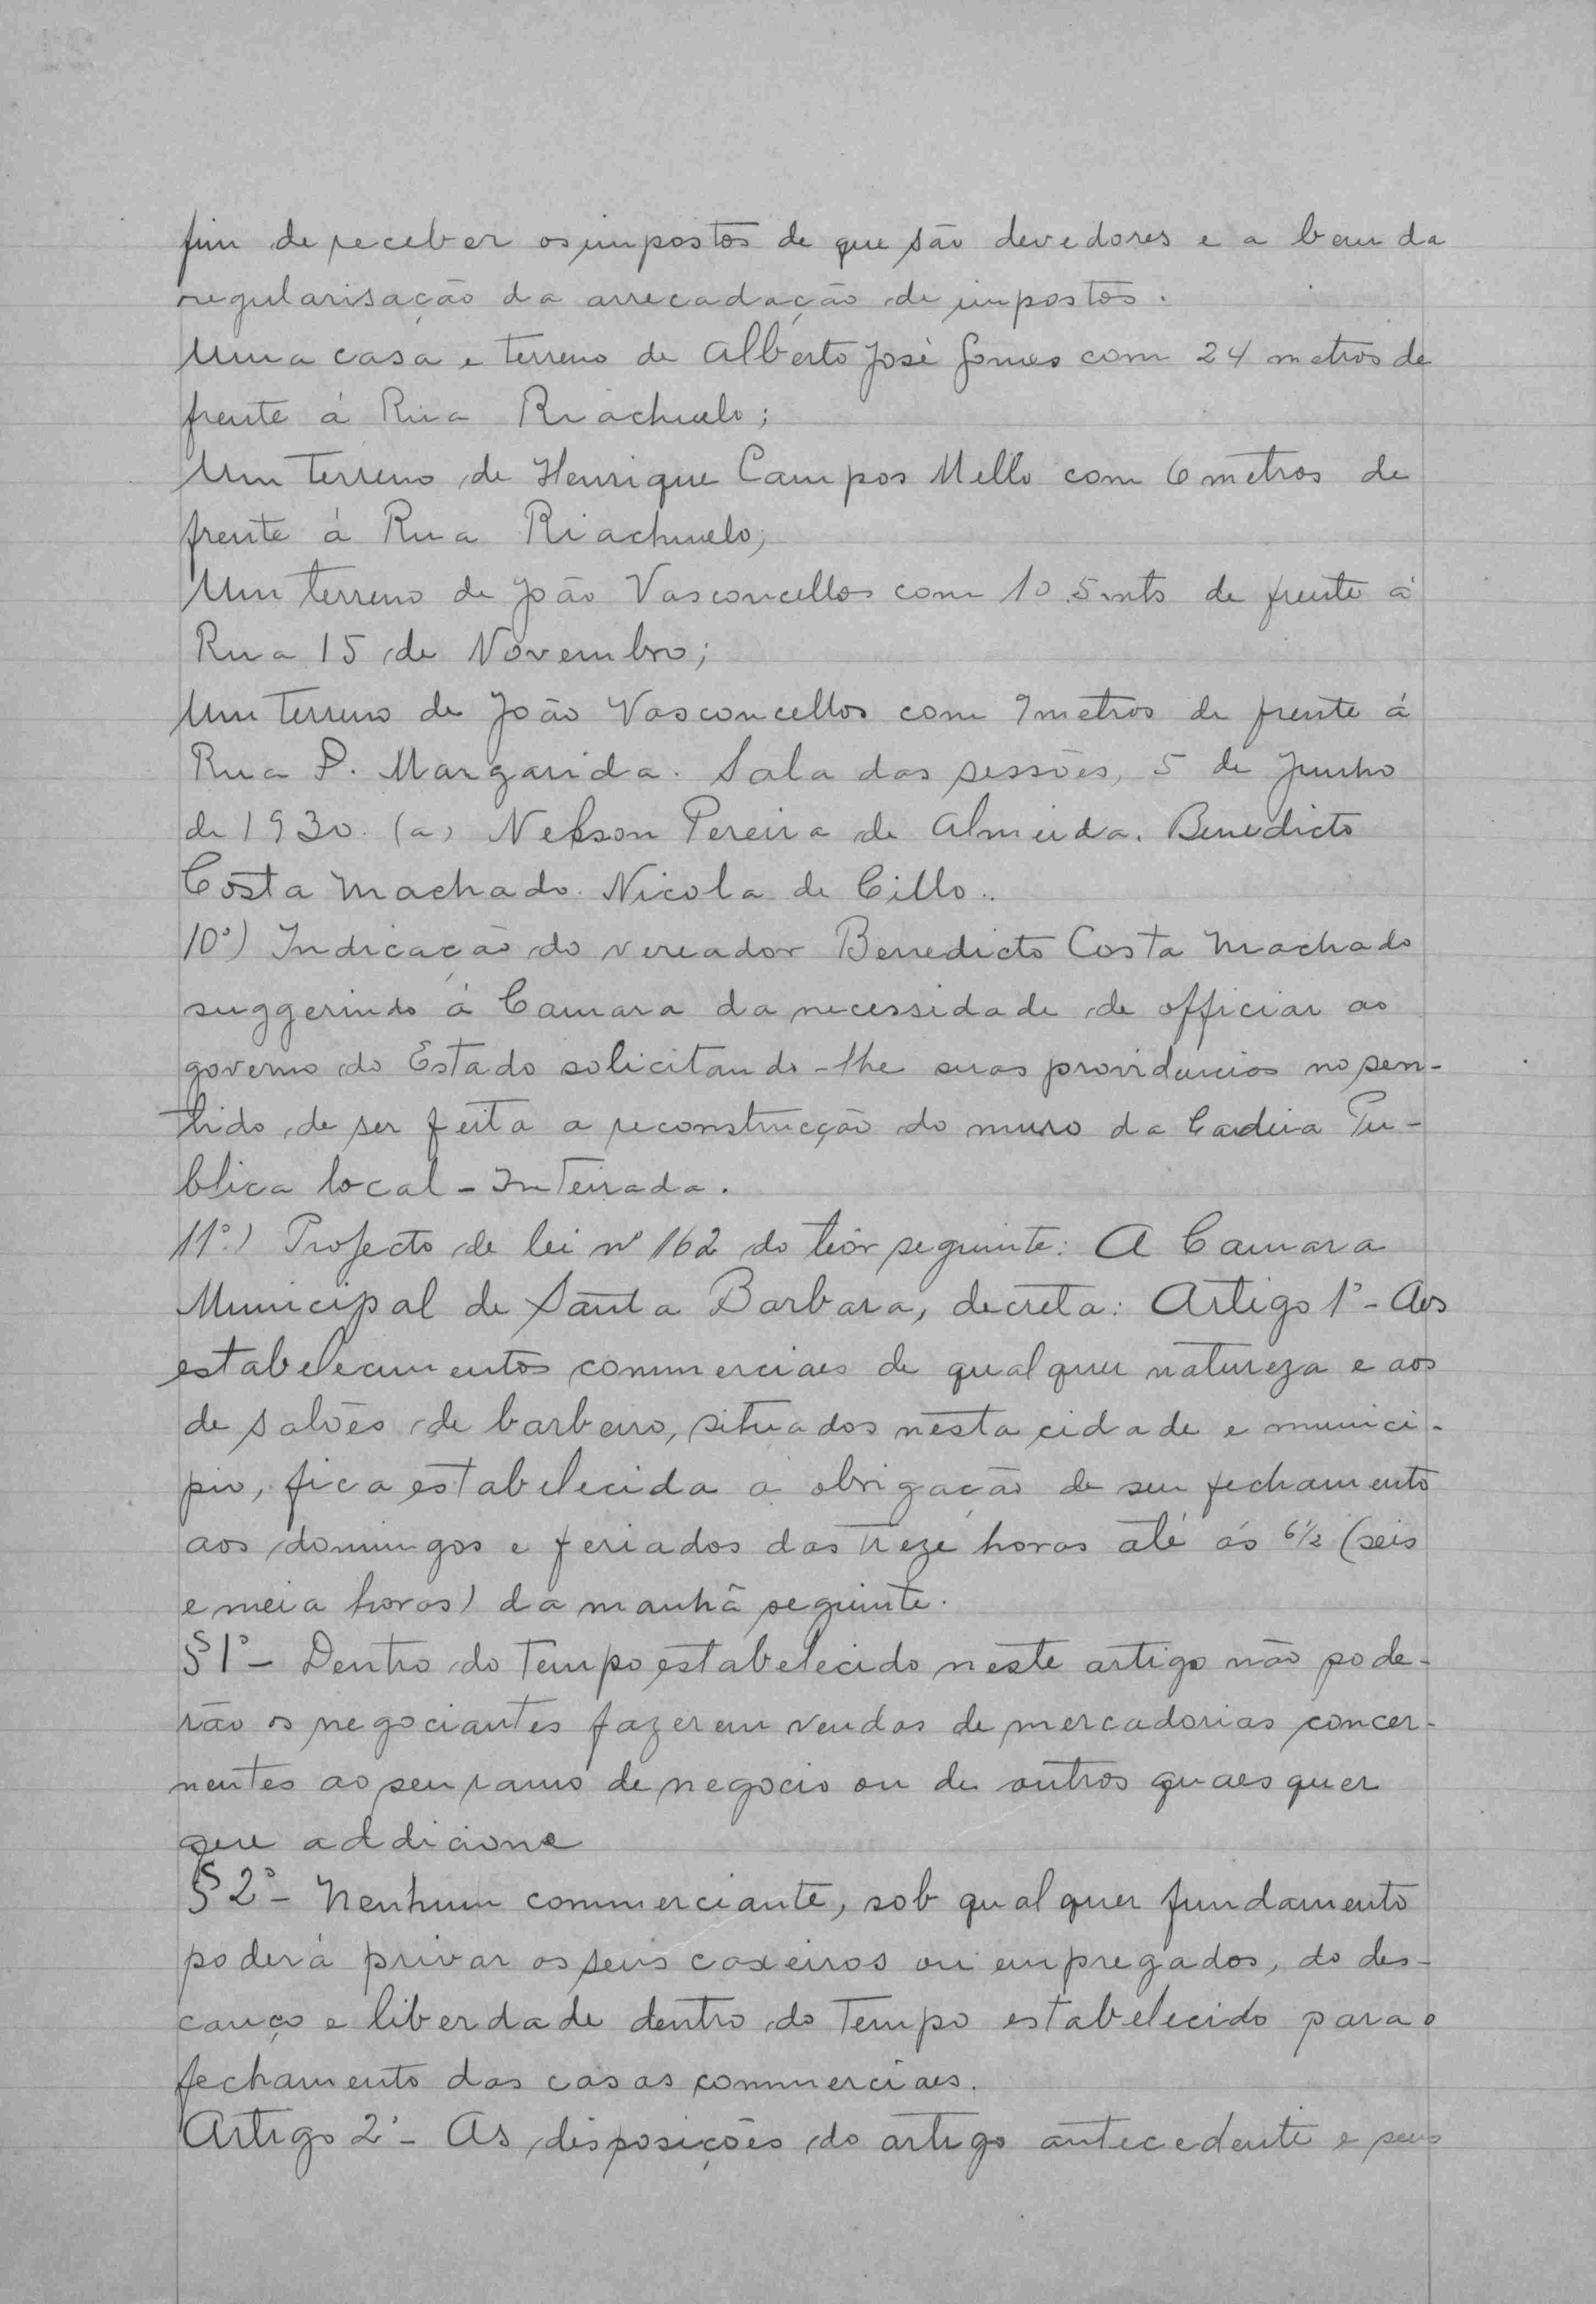 fim de receber os impostos de que são devedores e a bem da
regularisação da arrecadação de impostos.
Uma casa e terreno de Alberto José Gomes com 24 metros de
frente á Rua Riachuelo;
Um terreno de Henrique Campos Mello com 6 metros de
frente á Rua Riachuelo;
Um terreno de João Vasconcellos com 10.5 mts de frente á
Rua 15 de Novembro;
Um terreno de João Vasconcellos com 9 metros de frente á
Rua D. Margarida. Sala das sessões, 5 de Junho
de 1930. (a) Nelson Pereira de Almeida. Benedicto
Costa Machado. Nicola de Cillo.
10º) Indicação do vereador Benedicto Costa Machado
suggerindo á Camara da necessidade de officiar ao
governo do Estado solicitando-lhe suas providencias no sen-
tido de ser feita a reconstrucção do muro da Cadeia Pu-
blica local - Inteirada.
11º) Projecto de lei nº 162 do teôr seguinte: A Camara
Municipal de Santa Barbara, decreta: Artigo 1º - Aos
estabelecimentos commerciaes de qualquer natureza e aos
de salões de barbeiro, situados nesta cidade e munici-
pio, fica estabelecida a obrigação de seu fechamento
aos domingos e feriados das treze horas até ás 6½ (seis
e meia horas) da manhã seguinte.
§ 1º - Dentro do tempo estabelecido neste artigo não pode-
rão os negociantes fazerem vendas de mercadorias concer-
nentes ao seu ramo de negocio ou de outros quaesquer
que addicione
§ 2º - Nenhum commerciante, sob qualquer fundamento
poderá privar os seus caxeiros ou empregados, do des-
canço e liberdade dentro do tempo estabelecido para o
fechamento das casas commerciaes.
Artigo 2º - As disposições do artigo antecedente e seus